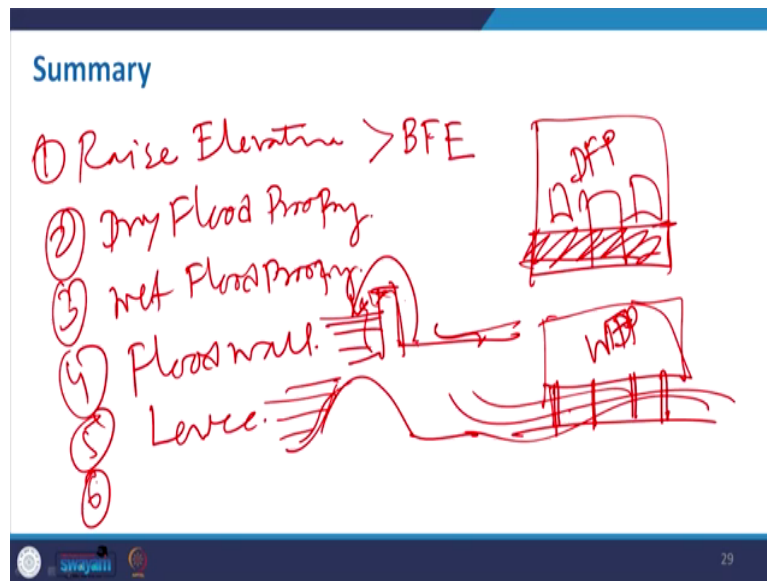 Summary
① Raise Elevation > BFE
② Dry Flood Proofing.
③ Wet Flood Proofing.
④ Flood wall.
⑤ Levee.
⑥
DFP
WFP
swayam
29